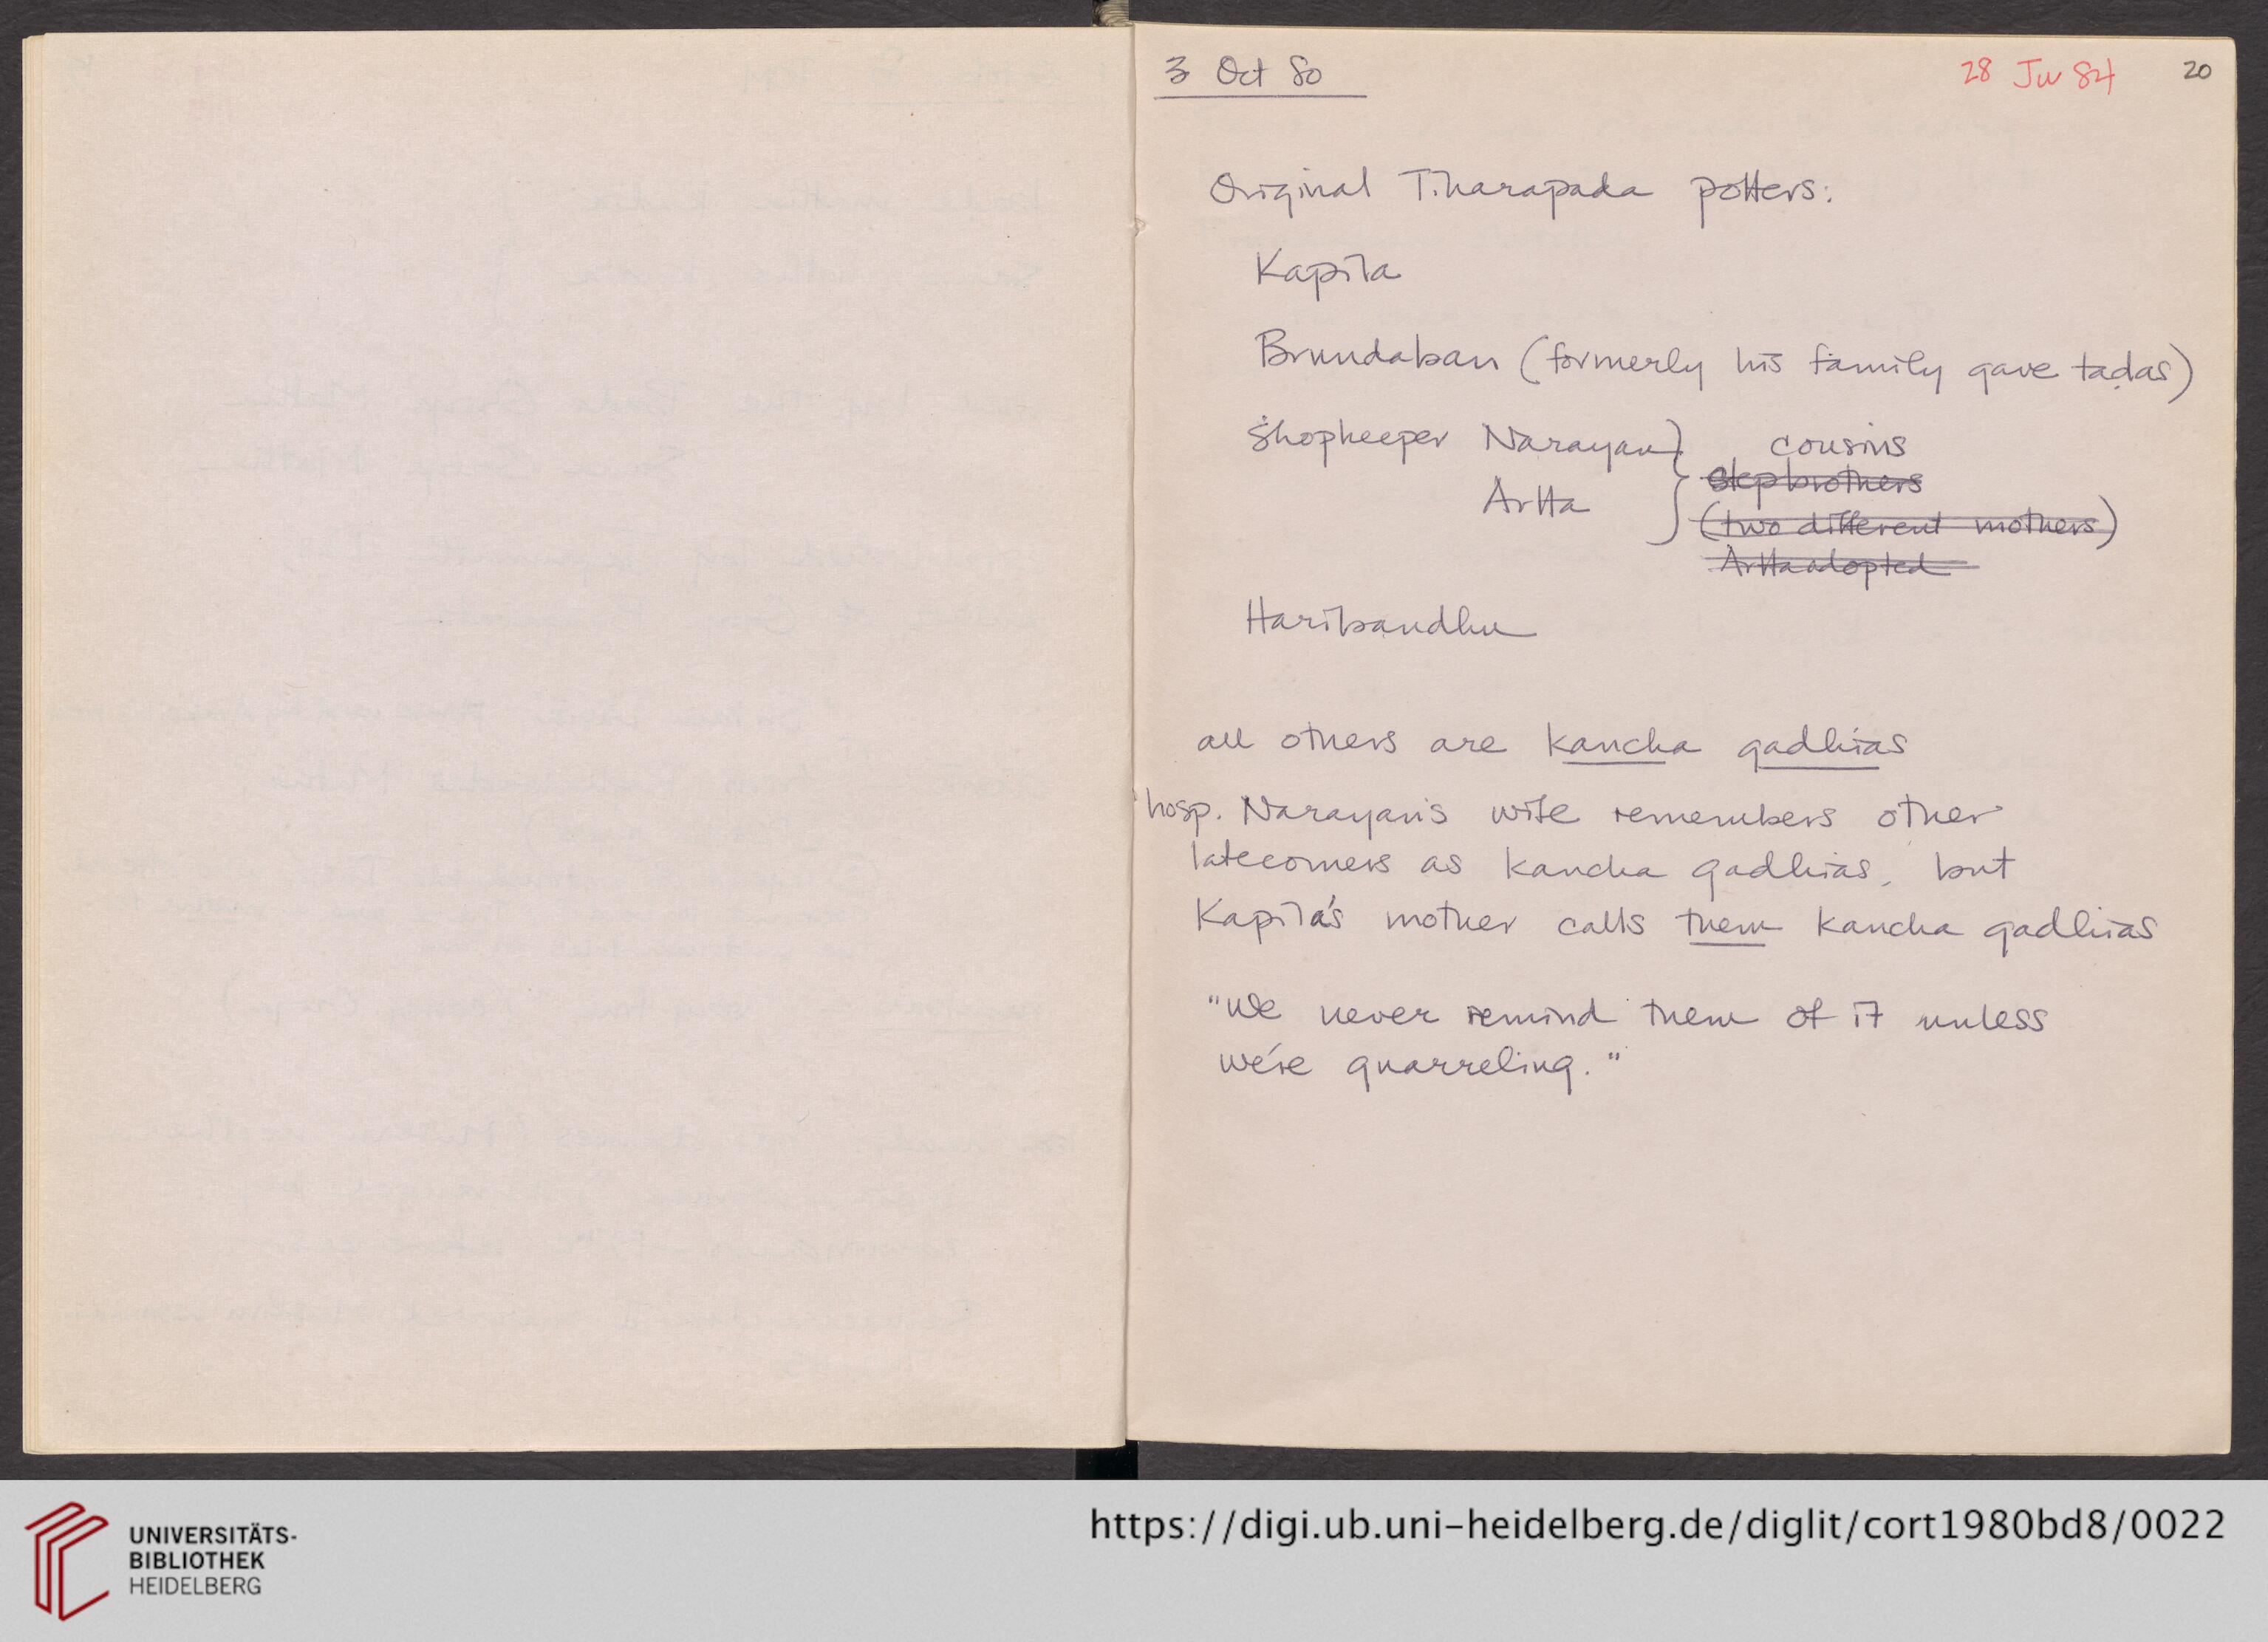 3 Oct 80
28 Ju 84
20
Original Tiharapada potters:
Kapila
Brundaban (formerly his family gave tadas)
shopkeeper Narayan } cousins
stepbrothers
Artta
(two different mothers)
Artta adopted
Haribandhu
all others are kancha gadhias
hosp. Narayan's wife remembers other
latecomers as kancha gadhias, but
Kapila's mother calls them kancha gadhias
"We never remind them of it unless
we're quarreling."
UNIVERSITÄTS-
BIBLIOTHEK
HEIDELBERG
https://digi.ub.uni-heidelberg.de/diglit/cort1980bd8/0022